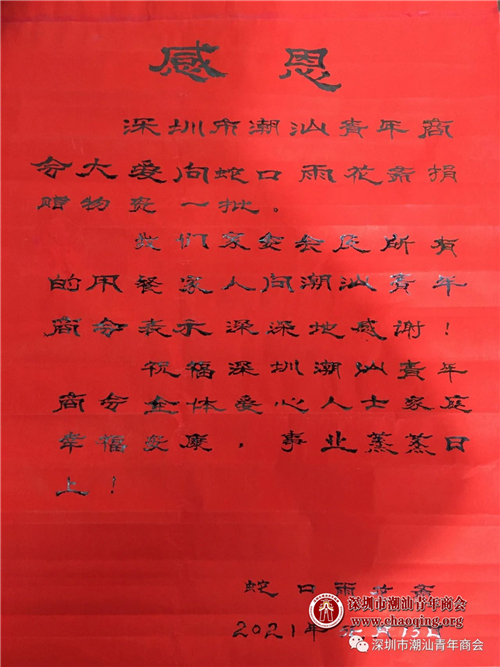 感恩
深圳市潮汕青年商
会大爱向蛇口雨花斋捐
赠物资一批。
我们
所有
的用餐家人向潮汕青年
商会表示深深地感谢!
祝福深圳潮汕青年
商会全体爱心人士家庭
幸福安康,事业蒸蒸日
上!
蛇口雨花斋
2021年 月13日
深圳市潮汕青年商会
www.chaoqing.org
深圳市潮汕青年商会